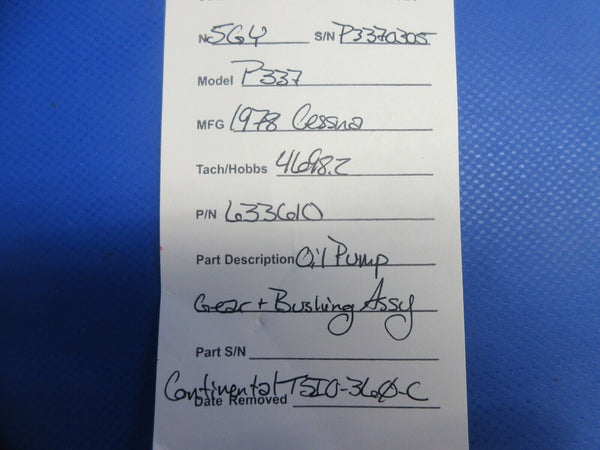 N 5GY S/N P3370305
Model P337
MFG 1978 Cessna
Tach/Hobbs 4698.2
P/N 633610
Part Description Oil Pump
Gear + Bushing Assy
Part S/N
Continental TSIO-360-C
Date Removed